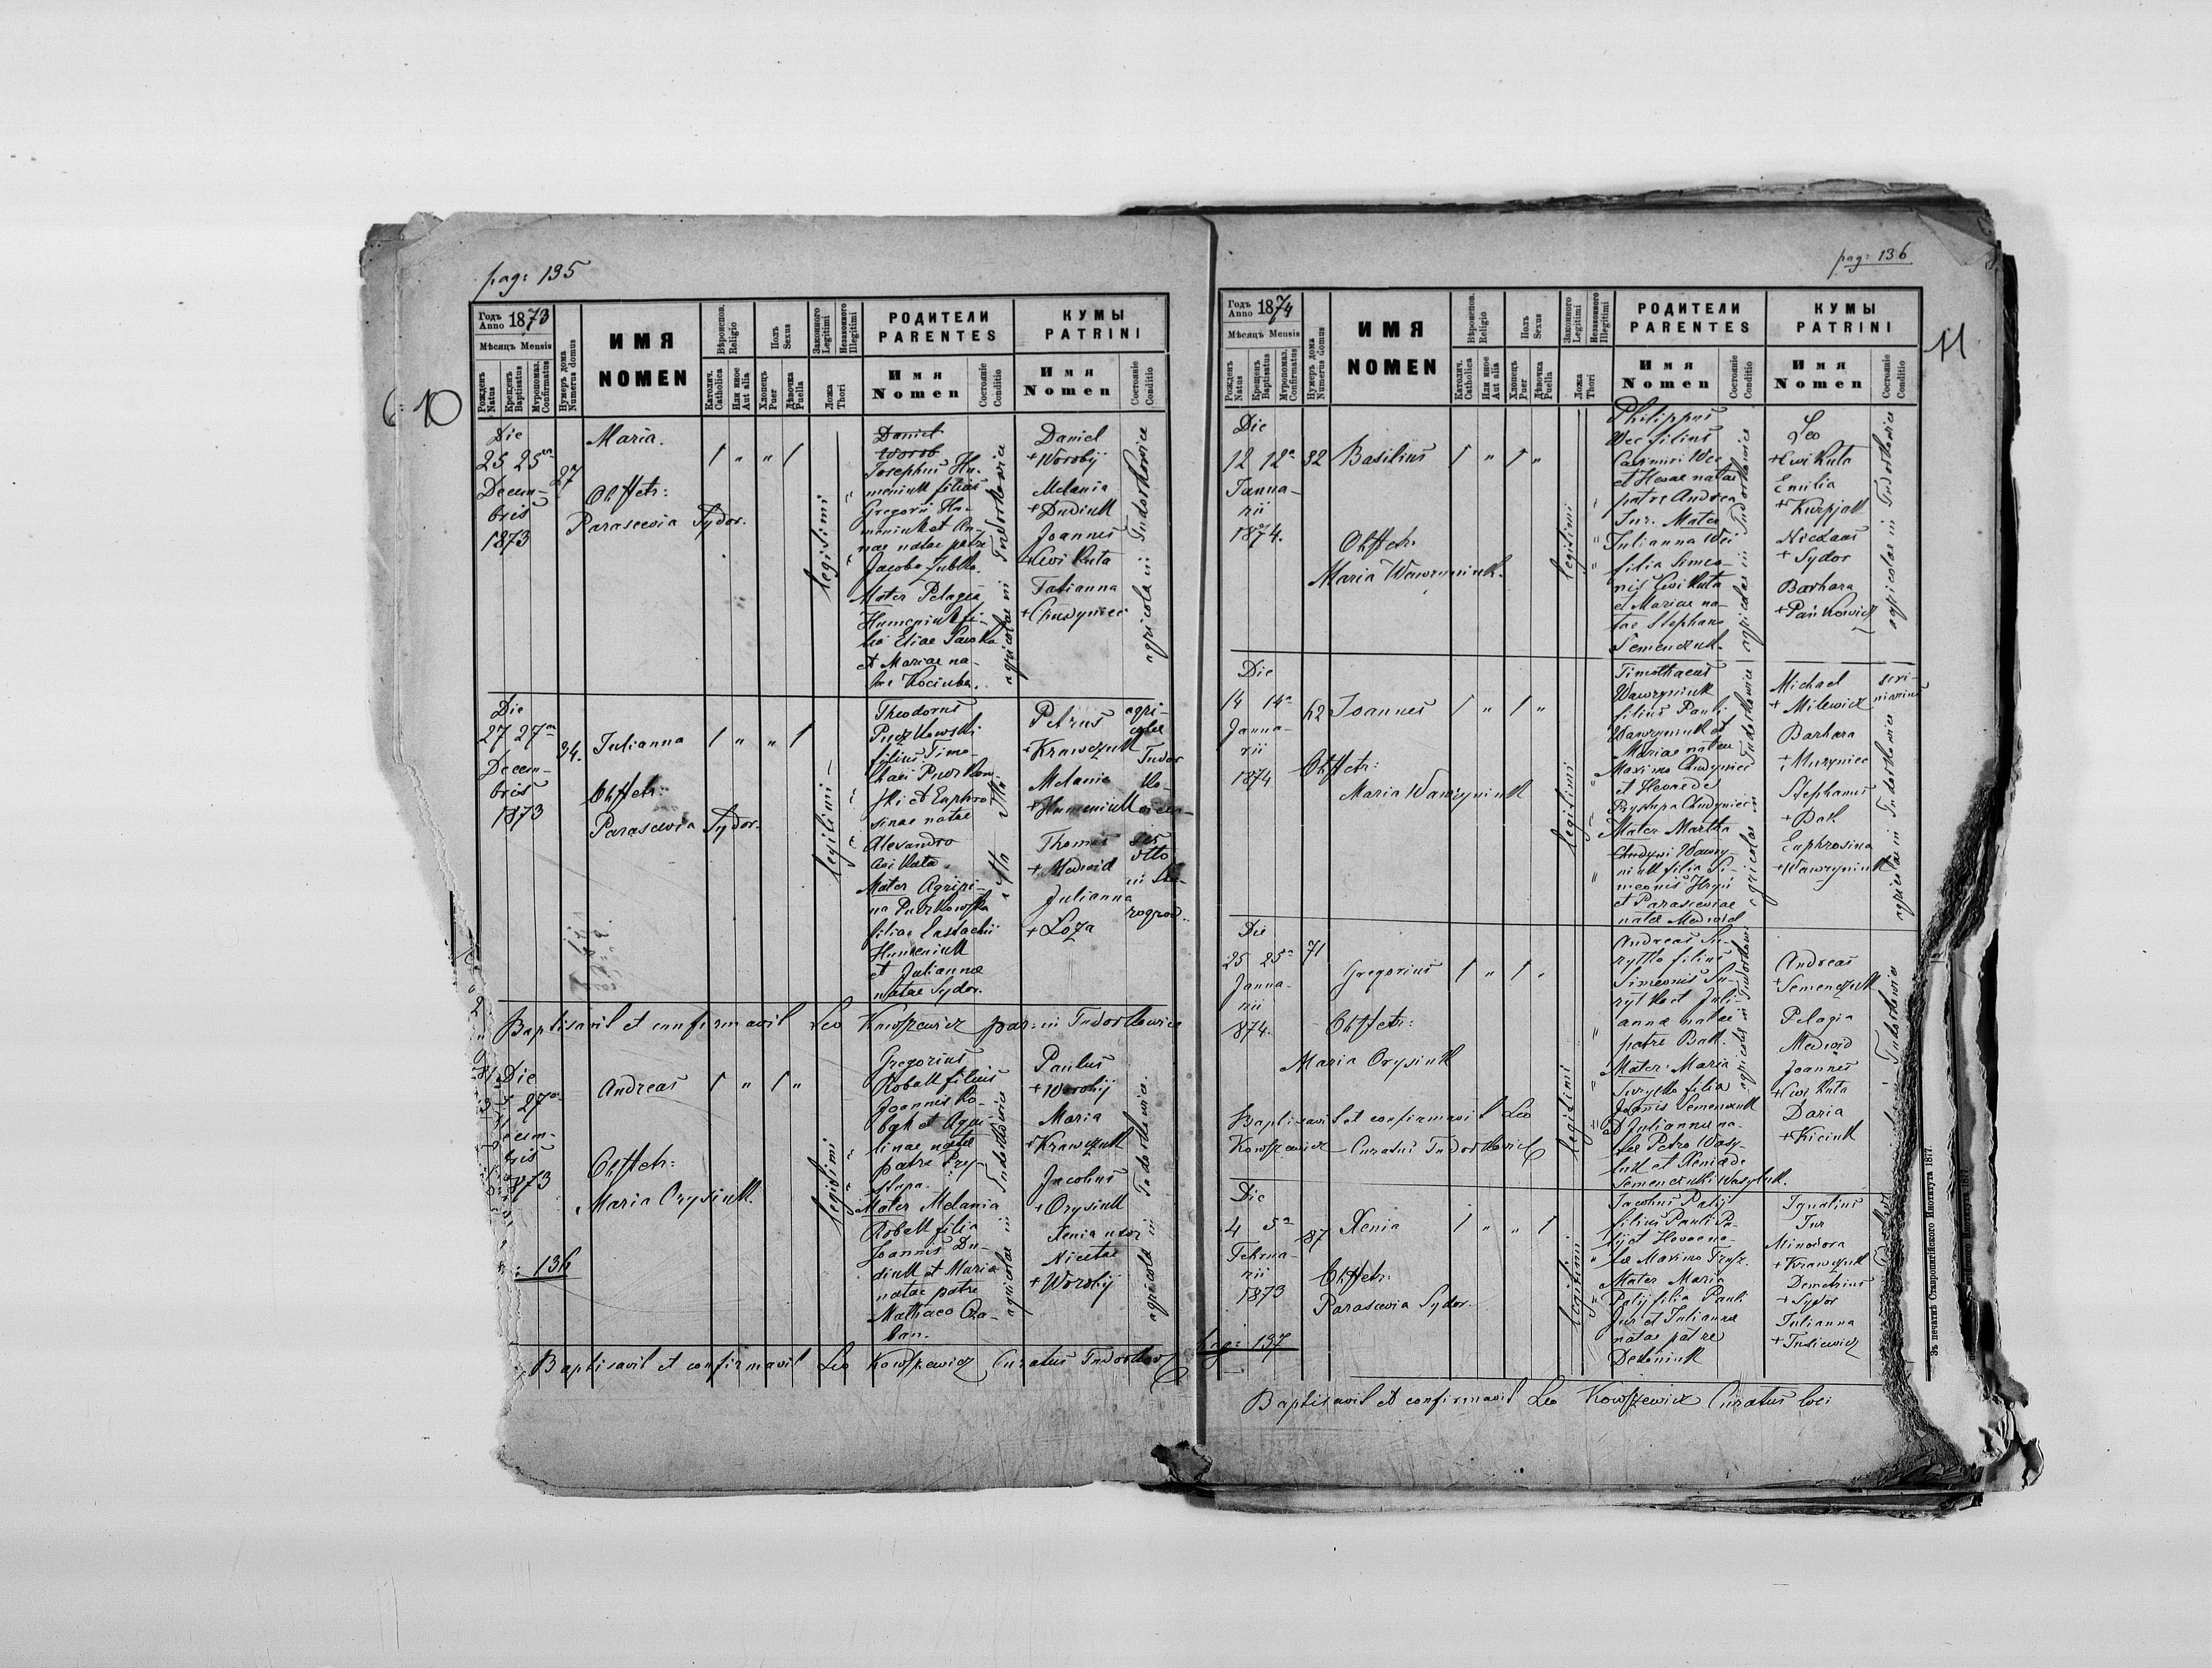 pag: 135
Годъ Anno 1873
Мѣсяцъ Mensis
Рожденъ Natus
Крещенъ Baptisatus
Муропомаз. Confirmatus
Нумеръ дома Numerus domus
ИМЯ
NOMEN
Вѣроиспов. Religio
Католич. Catholica
Или иное Aut alia
Полъ Sexus
Хлопецъ Puer
Дѣвочка Puella
Законного Legitimi
Незаконного Illegitimi
Ложа Thori
РОДИТЕЛИ
PARENTES
Имя
Nomen
Состояніе Conditio
КУМЫ
PATRINI
Имя
Nomen
Состояніе Conditio
10
Die
25 25a
Decem-
bris
1873
27
Maria.
Obstetr:
Parascevia Sydor.
legitimi
Daniel
Worob
Josephus Hu-
meniuk filius
Gregorii Hu-
meniuk et An-
nae natae patre
Jacobo
Mater Pelagia
Humeniuk fi-
lia Eliae
et Mariae na-
tae Kociuba.
agricolae in Tudorkowice
Daniel
+ Worobij
Melania
+ Dudiuk
Joannes
+ Cwikuta
Tatianna
+ Chudyniec
agricola in Tudorkowice
Die
27 27a
Decem-
bris
1873
34.
Julianna
Obstetr:
Parascevia Sydor.
legitimi
Theodorus
Puzkowski
filius Timo-
thaei Puzkow
ski et Euphro
sinae natae
Alexandro
Cwikuta
Mater Agripi-
na Puzkowska
filiae Eustachii
Humeniuk
et Juliannae
natae Sydor.
Petrus
+ Krawczuk
Melania
+ Humeniuk
Thomas
+ Medwid
Julianna
+ Łoza
agri-
colae
Tudor
ko-
Baptisavit et confirmavit Leo Kowszewicz par: in Tudorkowice
Die
27a
cem-
bris
873
Andreas
Obstetr:
Maria Orysiuk.
legitimi
Gregorius
Kobak filius
Joannis Ko-
bak et Aqui
linae natae
patre Pry-
stupa.
Mater Melania
Kobak filia
Joannis Du-
diuk et Maria
natae patre
Mathaeo Cza-
ban.
agricolae in Tudorkowice
Paulus
+ Worobij
Maria
+ Krawczuk
Jacobus
+ Orysiuk
Xenia uxor
Nicetae
+ Worobij
agricola in Tudorkowice.
: 136
Baptisavit et confirmavit Leo Kowszewicz Curatus Tudorkow
pag: 136
11
Годъ Anno 1874
Мѣсяцъ Mensis
Рожденъ Natus
Крещенъ Baptisatus
Муропомаз. Confirmatus
Нумеръ дома Numerus domus
ИМЯ
NOMEN
Вѣроиспов. Religio
Католич. Catholica
Или иное Aut alia
Полъ Sexus
Хлопецъ Puer
Дѣвочка Puella
Законного Legitimi
Незаконного Illegitimi
Ложа Thori
РОДИТЕЛИ
PARENTES
Имя
Nomen
Состояніе Conditio
КУМЫ
PATRINI
Имя
Nomen
Состояніе Conditio
Die
12 12a
Janua-
rii
1874.
32
Basilius
Obstetr.
Maria Wawryniuk.
legitimi
Philippus
Wec filius
Casimiri Wec
et Hevae natae
patre Andrea
Jur. Mater
Julianna Wec
filia Simeo-
nis Cwikuta
et Mariae na-
tae Stephano
Semenczuk.
agricolae in Tudorkowice
Leo
+ Cwikuta
Emilia
+ Kurpjak
Nicolaus
+ Sydor
Barbara
+ Pańkowicz
agricolae in Tudorkowice
Die
14 14a
Janua-
rii
1874
62
Joannes
Obstetr:
Maria Wawryniuk
legitimi
Timothaeus
Wawryniuk
filius Pauli
Wawryniuk et
Mariae natae
Maximo Chudyniec
et Hevae de
Prystupa Chudyniec
Mater Martha
Chudyni Wawry-
niuk filia Si-
meonis
et Parasceviae
natae Medwid
agricolae in Tudorkowice
Michael
+ Milewicz
Barbara
+ Muzyniec
Stephanus
+ Bak
Euphrosina
+ Wawryniuk
agricolae in Tudorkowice
Die
25 25a
Janua-
rii
874.
71
Gregorius
Obstetr:
Maria Orysiuk
legitimi
Andreas Su-
rytko filius
Simeonis Su-
rytko et Juli-
anna natae
patre Bak.
Mater: Maria
Surytko filia
Joannis Semenczuk
et Juliannae na-
tae Petro Wasy-
luk et Xenia de
Semenczuki Wasyluk.
agricolae in Tudorkowi
Andreas
+ Semenczuk
Pelagia
Medwid
Joannes
+ Cwikuta
Daria
+ Kiciuk
Tudorkowice
Baptisavit et confirmavit Leo
Kowszewicz Curatus Tudorkowice
Die
4 5a
Februa-
rii
1873
87
Xenia
Obstetr:
Parascevia Sydor.
legitimi
Jacobus Palij
filius Pauli Pa-
lij et Hevae na-
tae Maximo
Mater Maria
Palij filia Pauli
Jur et Juliannae
natae patre
Ignatius
Jur
Minodora
+ Krawczuk
Demetrius
+ Sydor
Julianna
+ Tusiewicz
pag: 137
Baptisavit et confirmavit Leo Kowszewicz Curatus loci
Зъ печатнѣ Ставропигійского Института 1877.